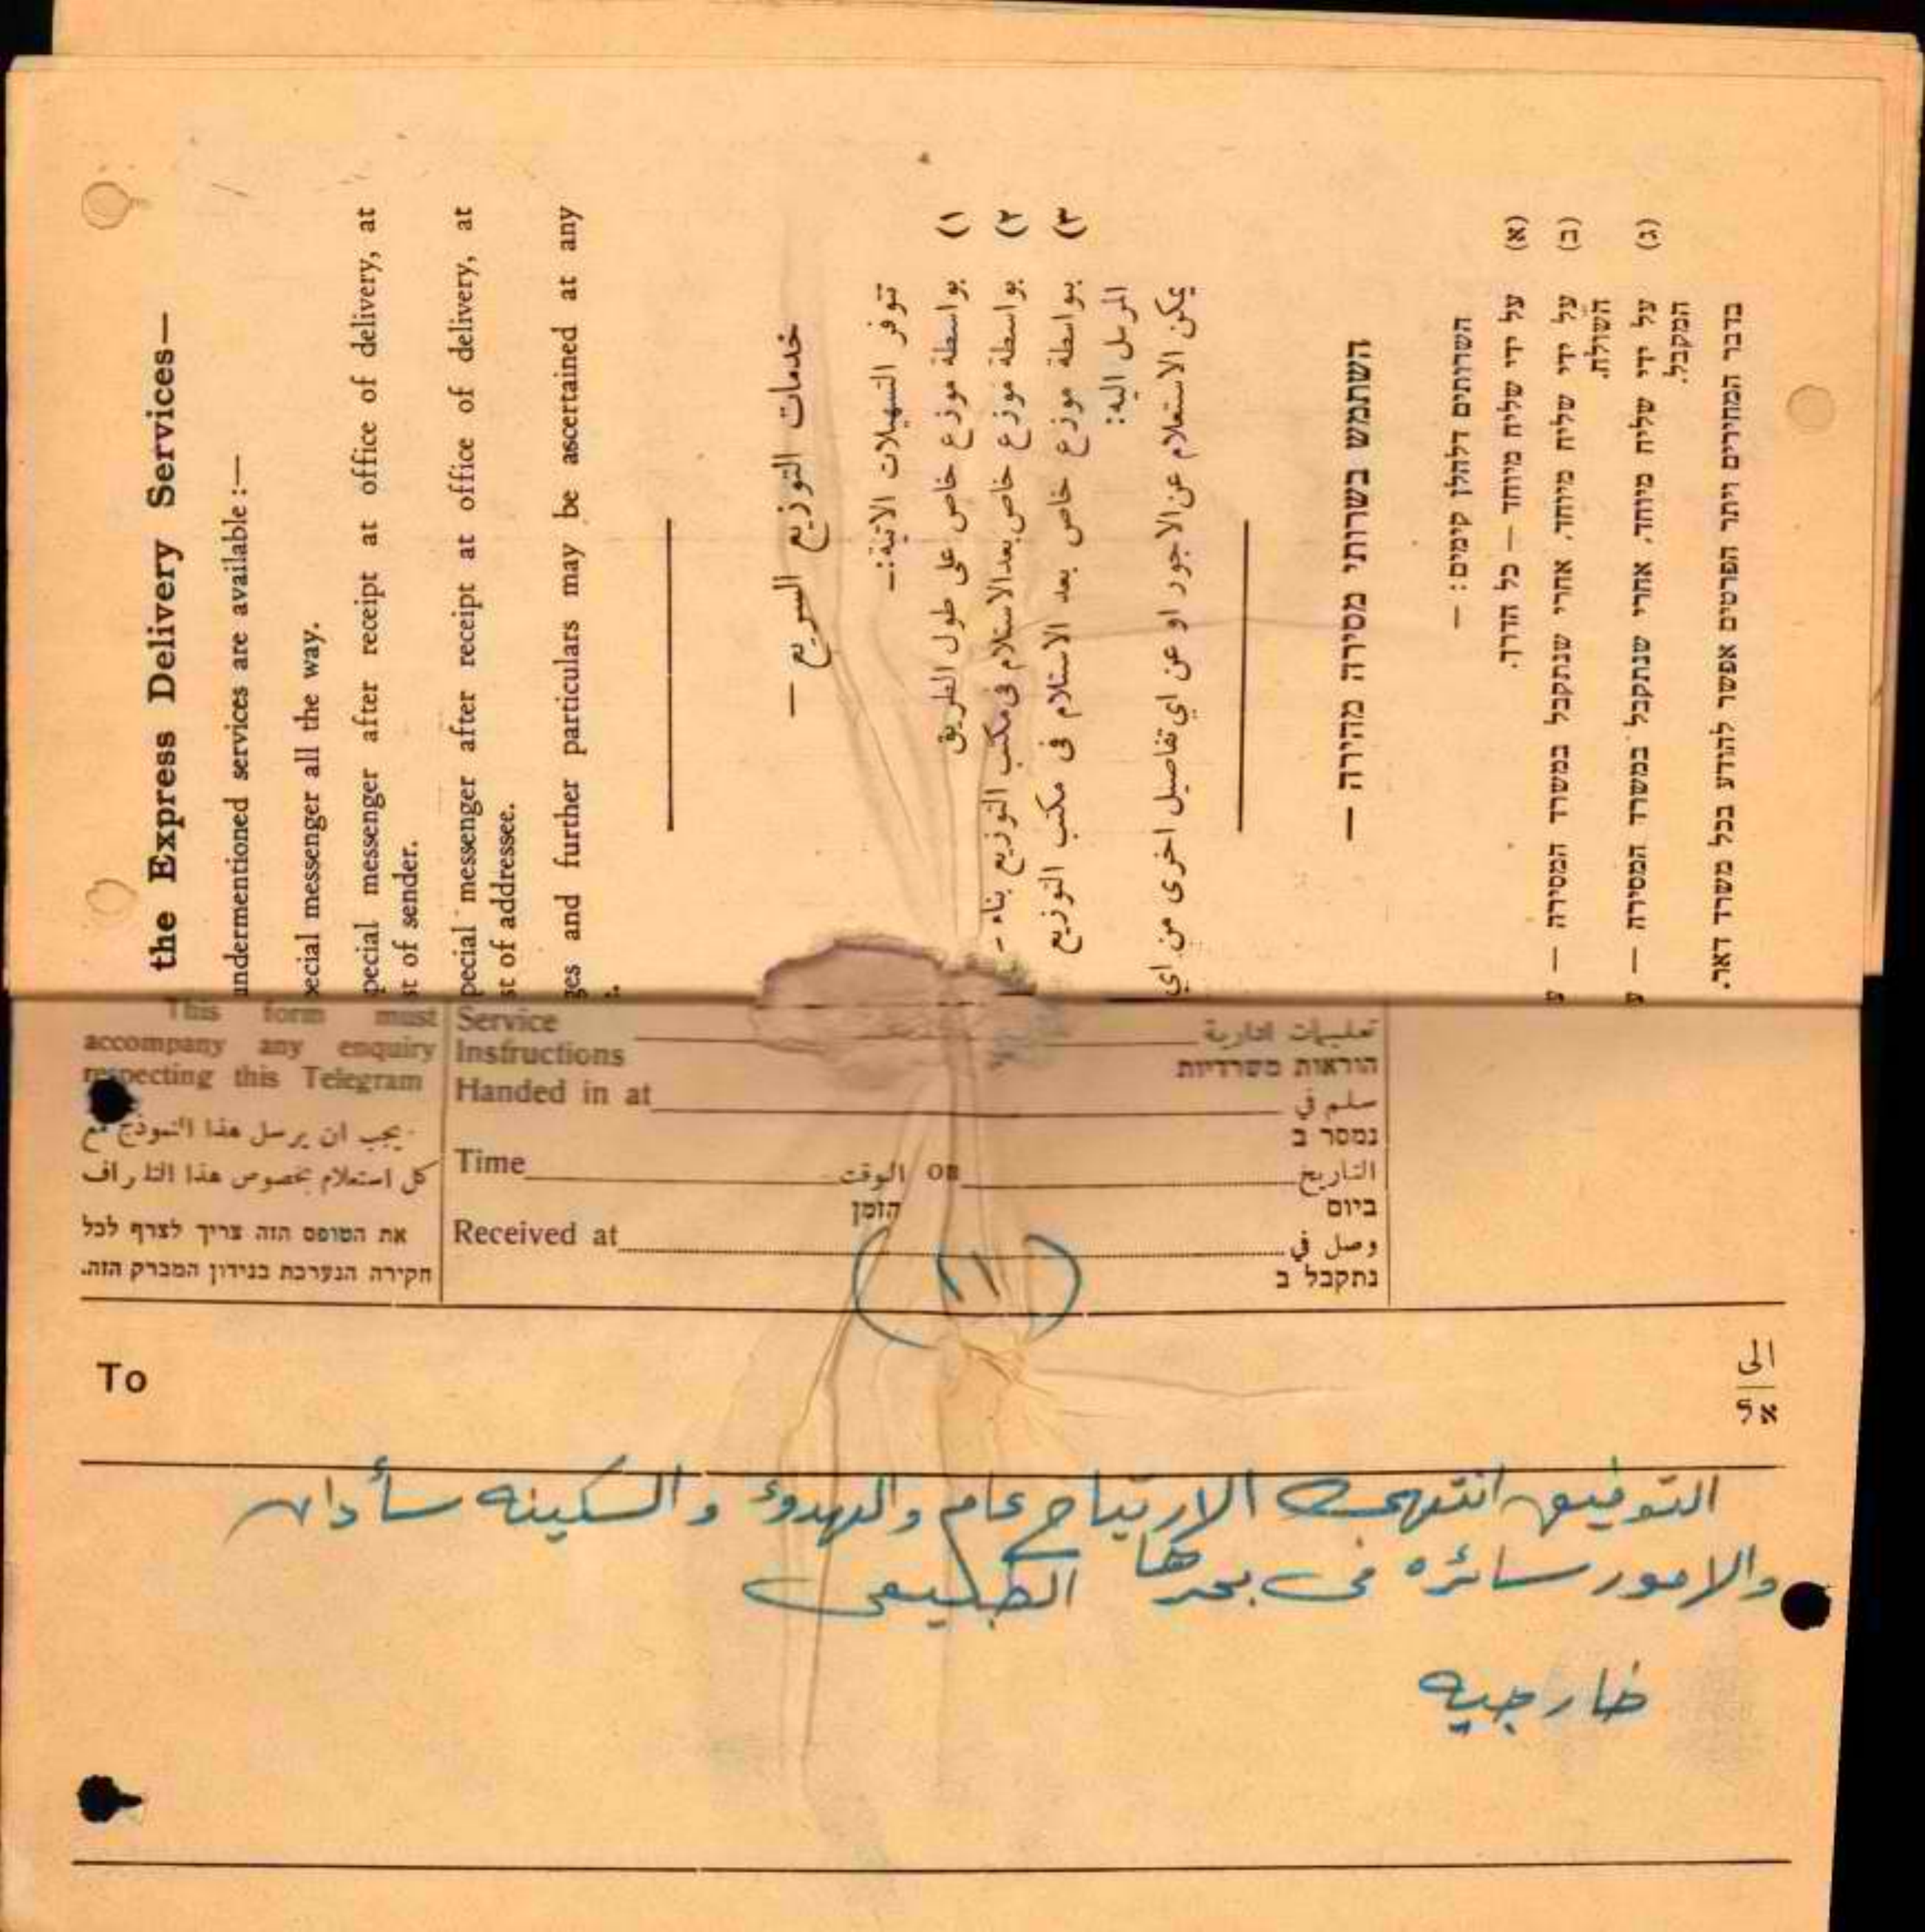 the Express Delivery Services—
undermentioned services are available :—
pecial messenger all the way.
pecial messenger after receipt at office of delivery, at
st of sender.
pecial messenger after receipt at office of delivery, at
st of addressee.
ges and further particulars may be ascertained at any
خدمات التوزيع السريع —
تتوفر التسهيلات الاتية:—
١) بواسطة موزع خاص على طول الطريق
٢) بواسطة موزع خاص بعد الاستلام فى مكتب التوزيع بناء -
٣) بواسطة موزع خاص بعد الاستلام فى مكتب التوزيع
المرسل اليه:
يمكن الاستعلام عن الاجور او عن اي تفاصيل اخرى من اي
השתמש בשרותי מסירה מהירה —
השרותים דלהלן קימים: —
(א) על ידי שליח מיוחד — כל הדרך.
(ב) על ידי שליח מיוחד, אחרי שנתקבל במשרד המסירה — ע
השולח.
(ג) על ידי שליח מיוחד, אחרי שנתקבל במשרד המסירה — ע
המקבל.
בדבר המחירים ויתר הפרטים אפשר להודע בכל משרד דאר.
This form must
accompany any enquiry
respecting this Telegram
يجب ان يرسل هذا النموذج مع
كل استعلام بخصوص هذا التلراف
את הטופס הזה צריך לצרף לכל
חקירה הנערכת בנידון המברק הזה.
Service تعليمات ادارية
Instructions הוראות משרדיות
Handed in at سلم في
נמסר ב
Time الوقت on التاريخ
הזמן ביום
Received at وصل في
נתקבל ב
(١١)
To الى
אל
التوفيق انتهى الارتياح عام والهدوء والسكينه سائدان
والامور سائره فى بحرها الطبيعى
خارجيه